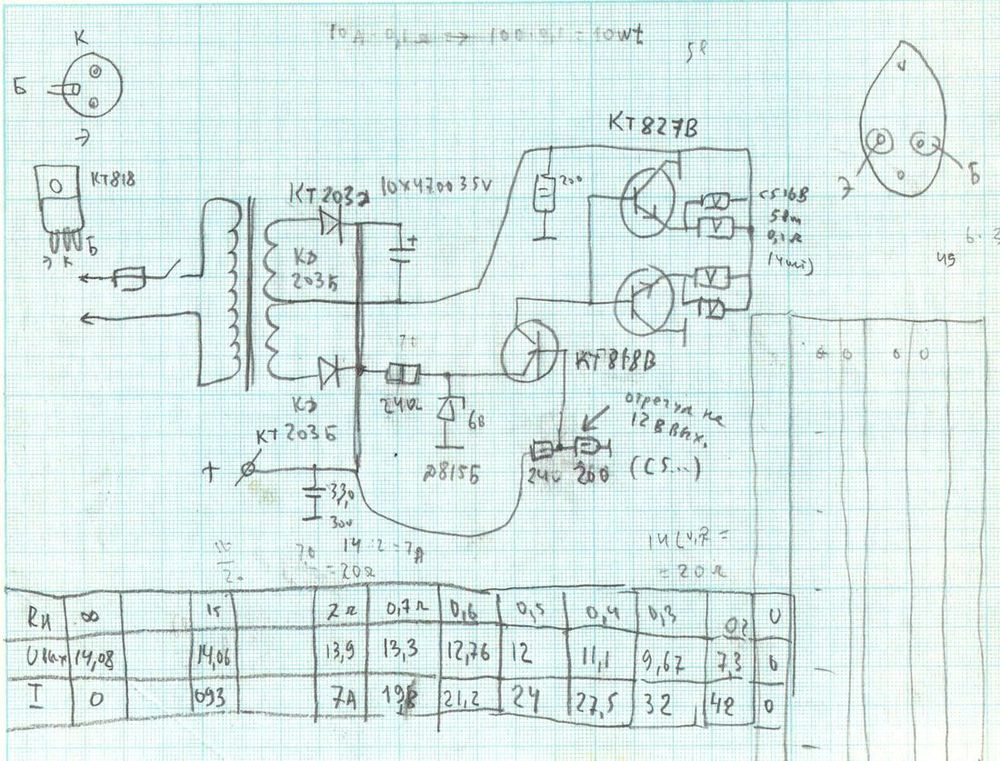 10A·0,1Ω → 100·0,1 = 10wt
К
Б
Э
КТ818
Э К Б
КТ203
10×4700 35V
КД
203Б
КД
КТ203Б
+
+
330
30V
240Ω
68
Д815Б
200
КТ827В
С516В
5Вт
0,1Ω
(4шт)
КТ818В
отрегул на
12В Вых.
240 260 (С5...)
Э
Б
14:2=7А
=20Ω
=20Ω
Rн ∞ 15 2Ω 0,7Ω 0,6 0,5 0,4 0,3 02 0
Uвых 14,08 14,06 13,9 13,3 12,76 12 11,1 9,67 7,3 0
I 0 093 7А 19 21,2 24 27,5 32 42 0